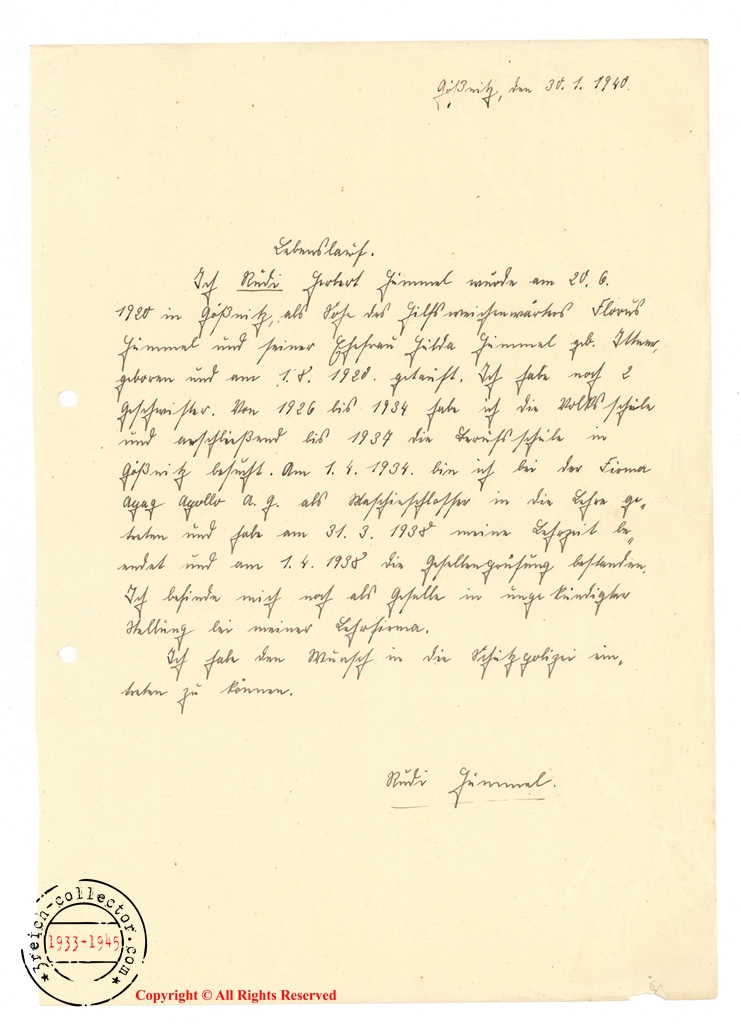 Gößnitz, den 30. 1. 1940.
Lebenslauf.
Ich Rudi Herbert Hummel wurde am 20. 6.
1920 in Gößnitz, als Sohn des Hilfsweichenwärters Florus
Hummel und seiner Ehefrau Hilda Hummel geb. Ittner,
geboren und am 1. 8. 1920. getauft. Ich habe noch 2
Geschwister. Von 1926 bis 1934 habe ich die Volksschule
und anschließend bis 1937 die Berufsschule in
Gößnitz besucht. Am 1. 4. 1934. bin ich bei der Firma
Apag Apollo A. G. als Maschieschlosser in die Lehre ge-
treten und habe am 31. 3. 1938 meine Lehrzeit be-
endet und am 1. 4. 1938 die Gesellenprüfung bestanden.
Ich befinde mich noch als Geselle in ungekündigter
Stellung bei meiner Lehrfirma.
Ich habe den Wunsch in die Schutzpolizei ein-
treten zu können.
Rudi Hummel.
3reich-collector.com
1933-1945
Copyright © All Rights Reserved